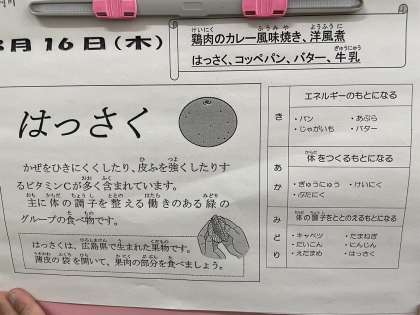 月16日(木)
鶏肉のカレー風味焼き、洋風煮
はっさく、コッペパン、バター、牛乳
はっさく
かぜをひきにくくしたり、皮ふを強くしたりす
るビタミンCが多く含まれています。
主に体の調子を整える働きのある緑の
グループの食べ物です。
はっさくは、広島県で生まれた果物です。
薄皮の袋を開いて、果肉の部分を食べましょう。
き
エネルギーのもとになる
・パン ・あぶら
・じゃがいも ・バター
あか
体をつくるもとになる
・ぎゅうにゅう ・けいにく
・ぶたにく
みどり
体の調子をととのえるもとになる
・キャベツ ・たまねぎ
・だいこん ・にんじん
・えだまめ ・はっさく